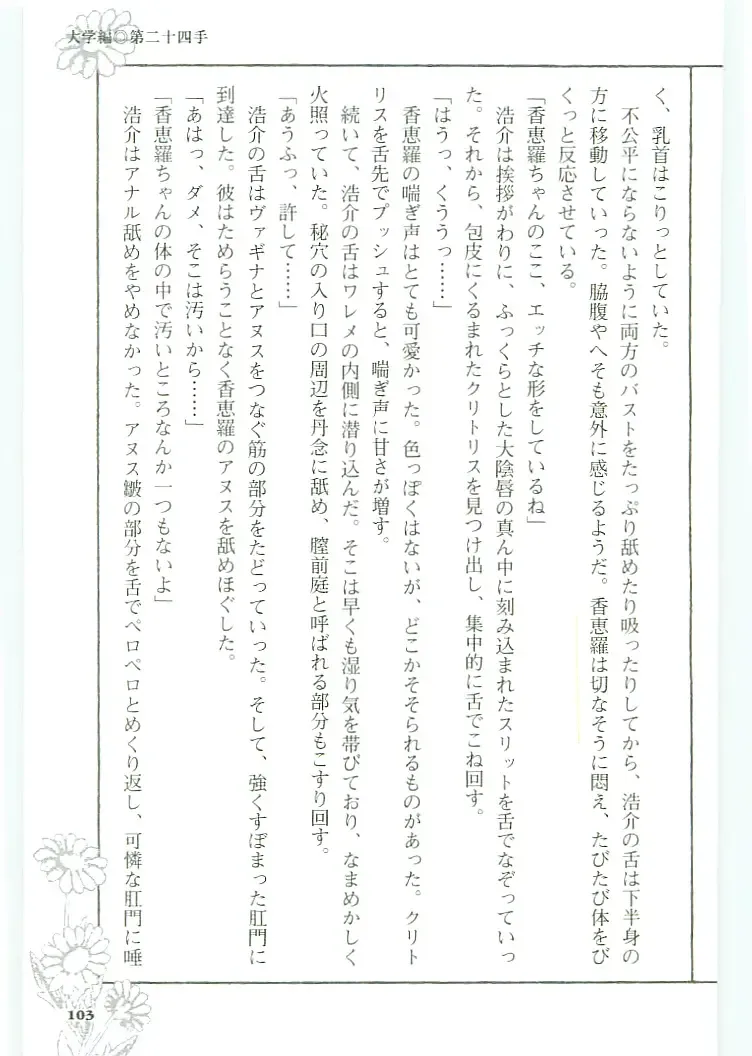 大学編◎第二十四手
く、乳首はこりっとしていた。
不公平にならないように両方のバストをたっぷり舐めたり吸ったりしてから、浩介の舌は下半身の
方に移動していった。脇腹やへそも意外に感じるようだ。香恵羅は切なそうに悶え、たびたび体をび
くっと反応させている。
「香恵羅ちゃんのここ、エッチな形をしているね」
浩介は挨拶がわりに、ふっくらとした大陰唇の真ん中に刻み込まれたスリットを舌でなぞっていっ
た。それから、包皮にくるまれたクリトリスを見つけ出し、集中的に舌でこね回す。
「はうっ、くううっ……」
香恵羅の喘ぎ声はとても可愛かった。色っぽくはないが、どこかそそられるものがあった。クリト
リスを舌先でプッシュすると、喘ぎ声に甘さが増す。
続いて、浩介の舌はワレメの内側に潜り込んだ。そこは早くも湿り気を帯びており、なまめかしく
火照っていた。秘穴の入り口の周辺を丹念に舐め、膣前庭と呼ばれる部分もこすり回す。
「あうふっ、許して……」
浩介の舌はヴァギナとアヌスをつなぐ筋の部分をたどっていった。そして、強くすぼまった肛門に
到達した。彼はためらうことなく香恵羅のアヌスを舐めほぐした。
「あはっ、ダメ、そこは汚いから……」
「香恵羅ちゃんの体の中で汚いところなんか一つもないよ」
浩介はアナル舐めをやめなかった。アヌス皺の部分を舌でペロペロとめくり返し、可憐な肛門に唾
103